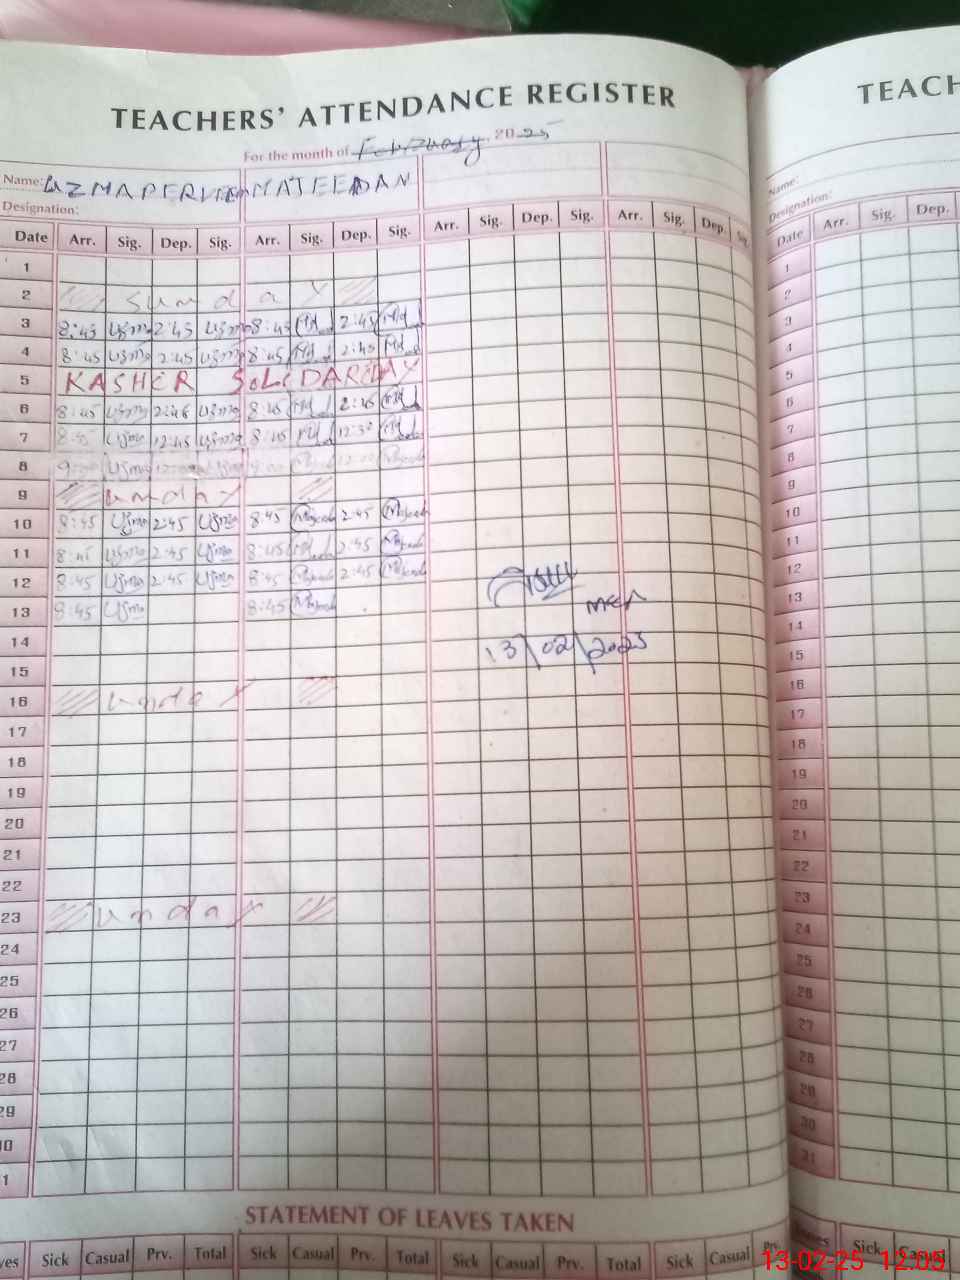 TEACHERS' ATTENDANCE REGISTER
TEACH
For the month of February, 2025
Name: UZMA PERVEEN MAJEEDAN
Name:
Designation:
Designation:
Date Arr. Sig. Dep. Sig. Arr. Sig. Dep. Sig. Arr. Sig. Dep. Sig. Arr. Sig. Dep. Sig.
Date Arr. Sig. Dep.
1
2 Sunday
3 8:45 Uzma 2:45 Uzma 8:45 2:45
4 8:45 Uzma 2:45 Uzma 8:45 2:45
5 KASHER SOLEDAREDAY
6 8:45 Uzma 2:45 Uzma 8:45 2:45
7 8:45 Uzma 12:45 Uzma 8:45 12:30
8 Uzma Uzma
9 unday
10 8:45 Uzma 2:45 Uzma 8:45 2:45
11 8:45 Uzma 2:45 Uzma 8:45 2:45
12 8:45 Uzma 2:45 Uzma 8:45 2:45
13 8:45 Uzma 8:45
MEA
14
13/02/2025
15
16 unday
17
18
19
20
21
22
23 unday
24
25
26
27
28
29
30
1
1
2
3
4
5
6
7
8
9
10
11
12
13
14
15
16
17
18
19
20
21
22
23
24
25
26
27
28
29
30
31
STATEMENT OF LEAVES TAKEN
ves Sick Casual Prv. Total Sick Casual Prv. Total Sick Casual Prv. Total Sick Casual Prv.
Sick Casual
13-02-25 12:05